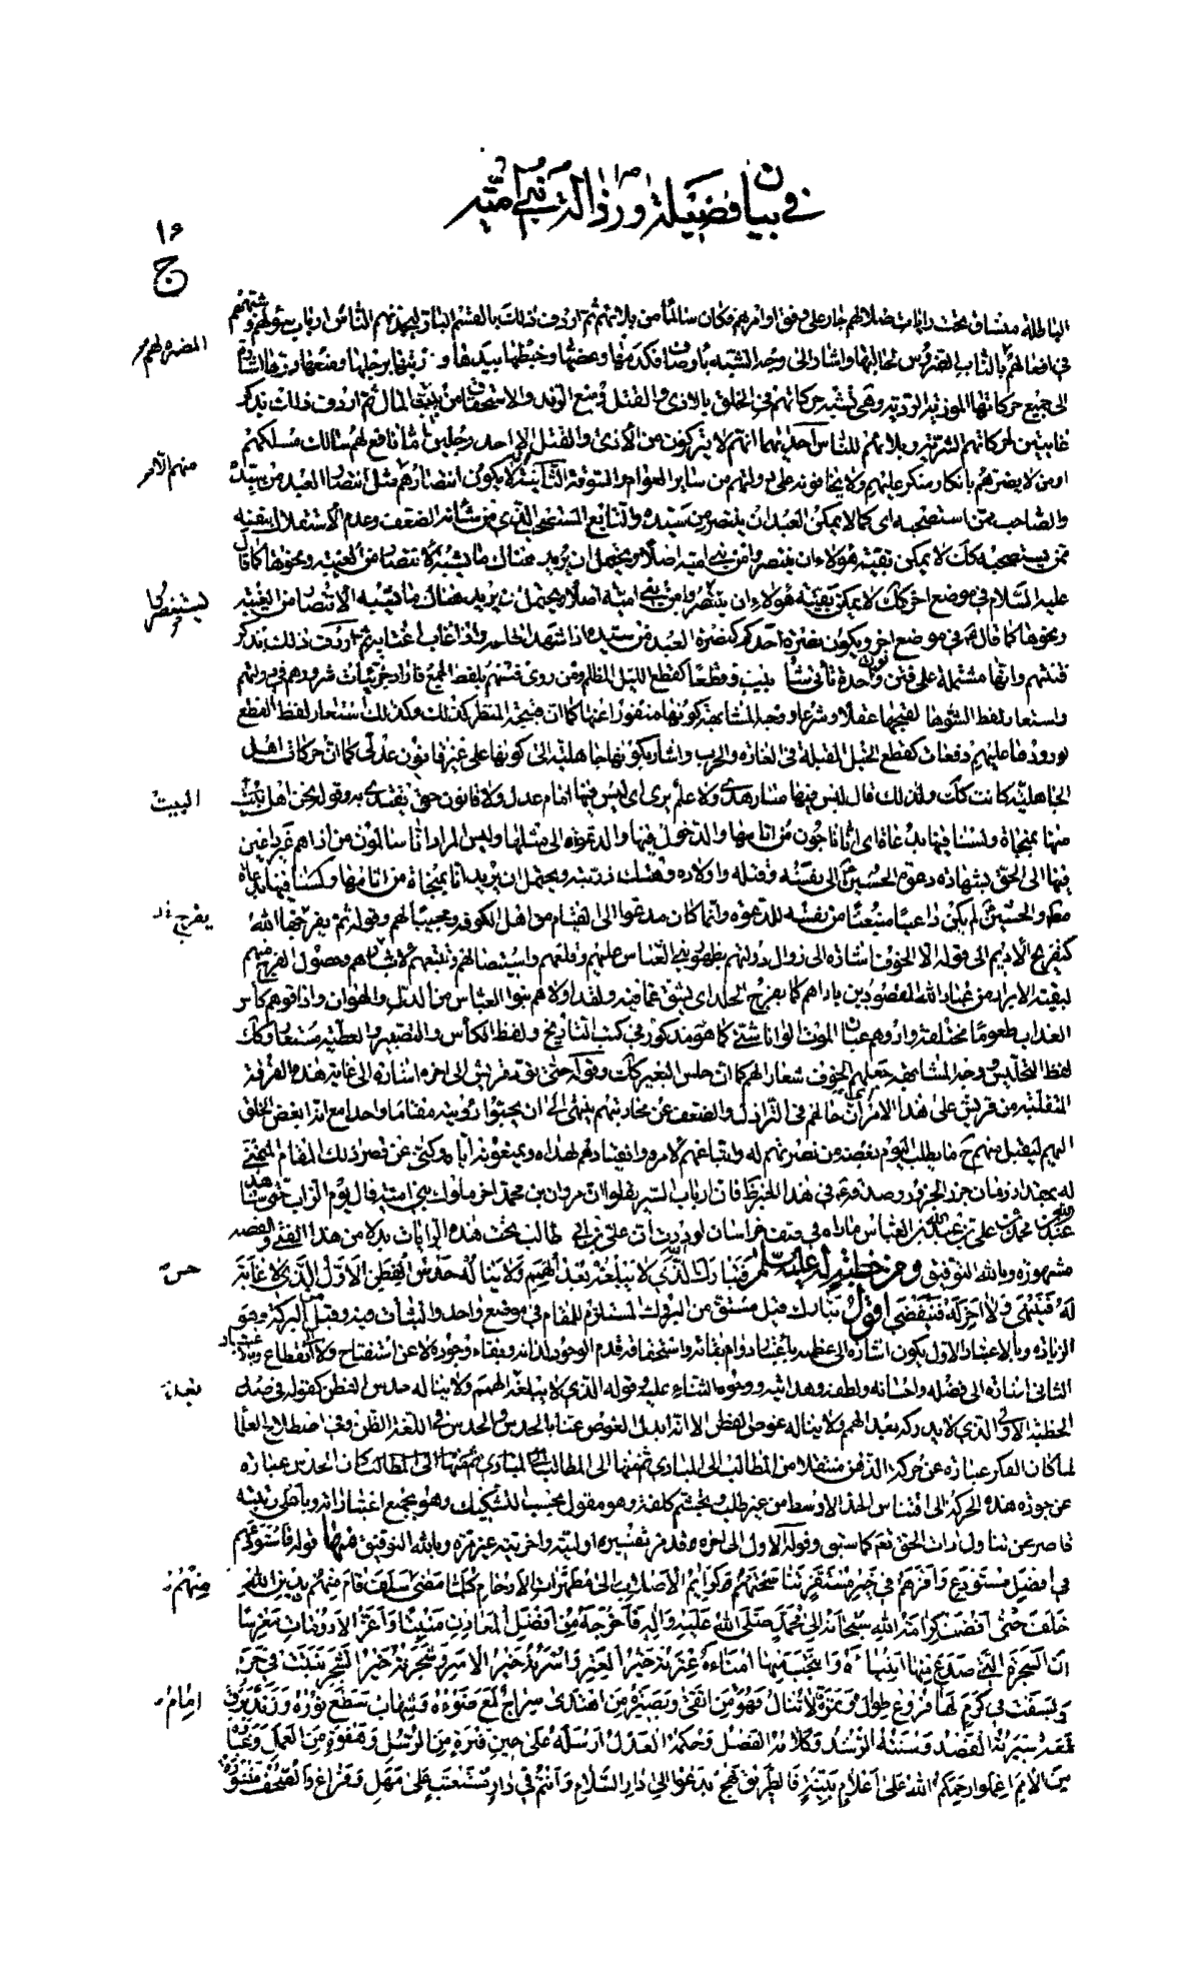 في بيان فضيلته ورذالة بني أمية
١٦
ج
الباطلة منساق تحت رايات ضلالهم جار على وفق اوامرهم فكان سالما من بلائهم ثم اردف ذلك بالقسم البار
في افعالهم بالناب الضروس لحالبها واشار الى وجه الشبه باوصاف
المضرة لهم
الى جميع حركاتها الموذية الردية وهي تشبه حركاتهم في الخلق بالاذى والقتل ومنع الرفد والاستحقاق من بيت المال ثم اردف ذلك بذكر
غايتين لحركاتهم الشريرة وبلائهم للناس احديهما انهم لا يتركون من الاذى والقتل الا احد رجلين اما نافع لهم سالك مسلكهم
او من لا يضرهم بانكار منكر عليهم ولا يخافونه على دولتهم من ساير العوام والسوقة الثانية لا يكون انتصارهم مثل انتصار العبد من سيده
منهم الا
والصاحب ممن استصحبه اى كما لا يمكن العبد ان ينتصر من سيده والتابع المستصحب الذى من شانه الضعف وعدم الاستقلال بنفسه
ممن يستصحبه كك لا يمكن بقية هؤلاء ان ينتصروا من بني امية اصلا ويحتمل ان يريد هناك ما يشبه الانتصار من الغيبة ونحوها كما قال
عليه السلام في موضع اخر كك لا يمكن بقية هؤلاء ان ينتصروا من بني امية اصلا ويحتمل ان يريد هناك ما يشبه الانتصار من الغيبة
ونحوها كما قال في موضع اخر ويكون نصرة احدكم كنصرة العبد من سيده اذا شهد اطاعه واذا غاب اغتابه ثم اردف ذلك بذكر
فتنتهم وانها مشتملة على فتن
واستعار لفظ الشوهاء لقبحها عقلا وشرعا ووجه المشابهة كونها منفورا عنها كما ان قبيحة المنظر كذلك وكذلك استعار لفظ القطع
لورودها عليهم دفعات كقطع الخيل المقبلة في الغارة والحرب واشار بكونها جاهلية الى كونها على غير قانون عدلى كما ان حركات اهل
الجاهلية كانت كك ولذلك قال ليس فيها منار هدى ولا علم يرى اى ليس فيها امام عدل ولا قانون حق يقتدى به وقوله نحن اهل البيت
البيت
منها بمنجاة ولسنا فيها بدعاة اى انا ناجون من اثامها والدخول فيها والدعوة الى مثلها وليس المراد انا سالمون من اذاهم غير داعين
فيها الى الحق بشهادة دعوة الحسين الى نفسه وقتله واولاده وهتك ذريته ويحتمل ان يريد انا بمنجاة من اثامها ولسنا فيها بدعاة
مط والحسين لم يكن داعيا منبعثا من نفسه للدعوة وانما كان مدعوا الى القيام من اهل الكوفة ومجيبا لهم وقوله ثم يفرجها الله
يفرج
كتفريج الاديم الى قوله الا الخوف اشارة الى زوال دولتهم بظهور بني العباس عليهم وقلعهم واستيصالهم وتتبعهم لاثارهم وحصول الفرج منهم
لبقية الابرار من عباد الله المقصودين باذاهم كما يفرج الجلد اى يشق عما فيه ولقد اولاهم بنوا العباس من الذل والهوان واذاقوهم كاس
العذاب طعوما مختلفة واروهم عيان الموت الوانا شتى كما هو مذكور في كتب التاريخ ولفظ الكأس والتصبير والعطية مستعار وكك
لفظ التحليس ووجه المشابهة جعلهم الخوف شعارا لهم كما ان حلس البعير كك وقوله حتى تود قريش الى اخره اشارة الى غاية هذه الفرقة
المتقلبة من قريش على هذا الامر اى ان حالهم في التراذل والضعف عن محاربتهم ينتهى الى ان يحبوا رؤيته مقاما واحدا مع انه ابغض الخلق
اليهم ليقبل منهم ح ما يطلب اليوم بعضه من نصرتهم له واتباعهم لامره وانقيادهم لهداه ويمنعونه اياه وكنى عن قصر ذلك المقام المتمنى
له بمقدار زمان جزر الجزور وصدقه في هذا الخبر ظ فان ارباب السير نقلوا ان مروان بن محمد اخر ملوك بني امية قال يوم الزاب حين شاهد
عبد الله بن محمد بن علي بن عبد الله بن العباس مارا به في صف خراسان لوددت ان علي بن ابي طالب تحت هذه الرايات بدلا من هذا الفتى والقصه
مشهورة وبالله التوفيق ومن خطبة له عليه السلم فتبارك الله الذي لا يبلغه بعد الهمم ولا يناله حدس الفطن الاول الذي لا غاية
حس
له فينتهى ولا اخر له فينقضى اقول تبارك قيل مشتق من البروك المستلزم للمقام في موضع واحد والثبات فيه وقيل من البركة وهو
الزيادة وبالاعتبار الاول يكون اشارة الى عظمته باعتبار دوام بقائه واستحقاقه قدم الوجود لذاته وبقاء وجوده لا عن استفتاح ولا انقطاع وبالاعتبار
الثانى اشارة الى فضله واحسانه ولطفه وهدايته ووجوه الثناء عليه وقوله الذي لا يبلغه بعد الهمم ولا يناله حدس الفطن كقوله في صدر
الخطبة الاولى الذي لا يدركه بعد الهمم ولا يناله غوص الفطن الا انه ابدل الغوص هنا بالحدس والحدس في اللغة الظن وفي اصطلاح العلما
لما كان الفكر عبارة عن حركة الذهن منتقلا من المطالب الى المبادى ثم منها الى المطالب كان الحدس عبارة
عن جودة هذه الحركة الى اقتناص الحد الاوسط من غير طلب وتجشم كلفة وهو مقول بحسب التشكيك وهو بجميع اعتباراته وباعلى رتبته
قاصر عن تناول ذات الحق تعم كما سبق وقوله الاول الى اخره قد مر تفسيره اوليته واخريته غير مرة وبالله التوفيق منها قوله فاستودعهم
في افضل مستودع واقرهم في خير مستقر تناسختهم كرائم الاصلاب الى مطهرات الارحام كلما مضى سلف قام منهم بدين الله
منهم
خلف حتى افضت كرامة الله سبحانه الى محمد صلى الله عليه واله فاخرجه من افضل المعادن منبتا واعز الارومات مغرسا
من الشجرة التي صدع منها انبياءه وانتجب منها امناءه عترته خير العتر واسرته خير الاسر وشجرته خير الشجر نبتت في حرم
وبسقت في كرم لها فروع طوال وثمرة لا تنال فهو امام من اتقى وبصيرة من اهتدى سراج لمع ضوءه وشهاب سطع نوره وزند برق
امام
لمعه سيرته القصد وسنته الرشد وكلامه الفصل وحكمه العدل ارسله على حين فترة من الرسل وهفوة من العمل وغباوة
من الامم اعملوا رحمكم الله على اعلام بينة فالطريق نهج يدعوا الى دار السلام وانتم في دار مستعتب على مهل وفراغ والصحف منشورة